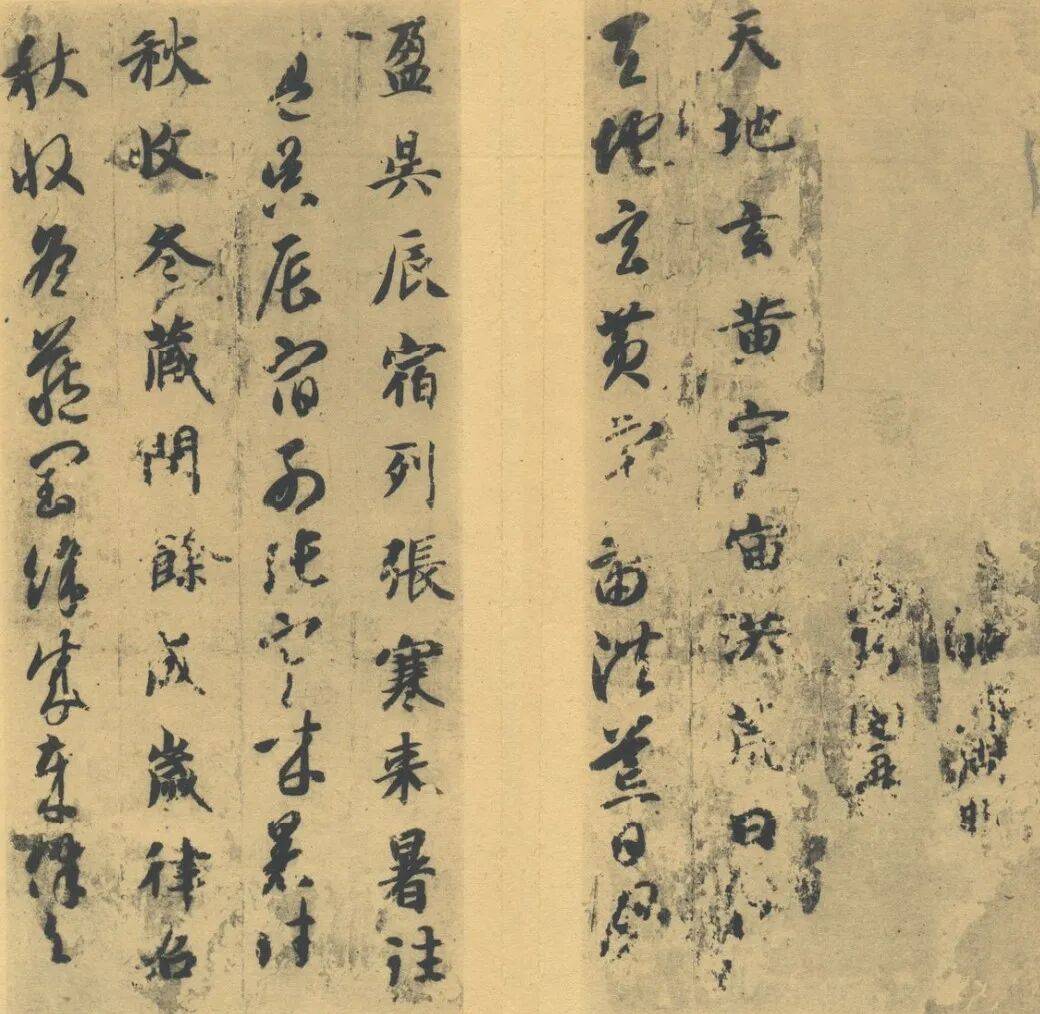 天地玄黄宇宙洪荒日月
天地玄黄宇宙洪荒日月
盈昃辰宿列張寒来暑往
盈昃辰宿列張寒来暑往
秋收冬藏閏餘成歲律召
秋收冬藏閏餘成歲律召